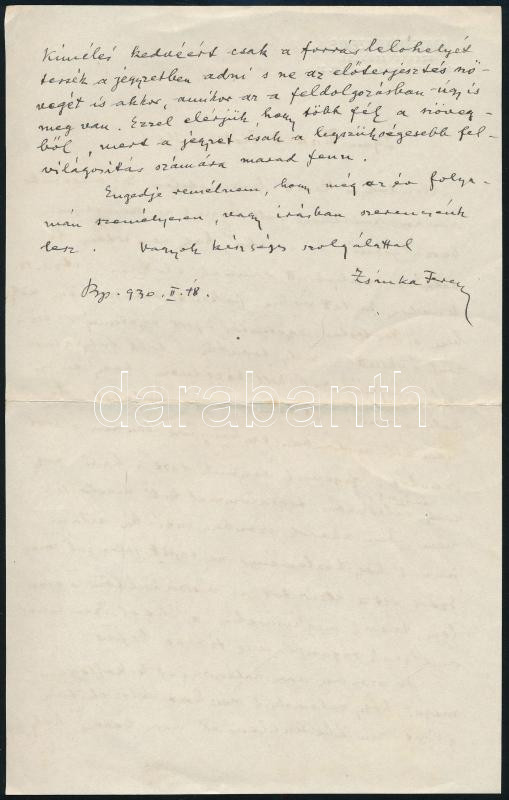 kímélés kedvéért csak a forrás lelőhelyét
teszék a jegyzetben adni s ne az előterjesztés szö-
vegét is akkor, amikor az a feldolgozásban úgy is
meg van. Ezzel elérjük, hogy több fél a szöveg-
ből, mert a jegyzet csak a legszükségesebb fel-
világosítás számára marad fenn.
Engedje remélnem, hogy még az év folya-
mán személyesen, vagy írásban szerencsénk
lesz. Vagyok készséges szolgálattal
Bp. 930. II. 18.
Zsinka Ferenc
darabanth